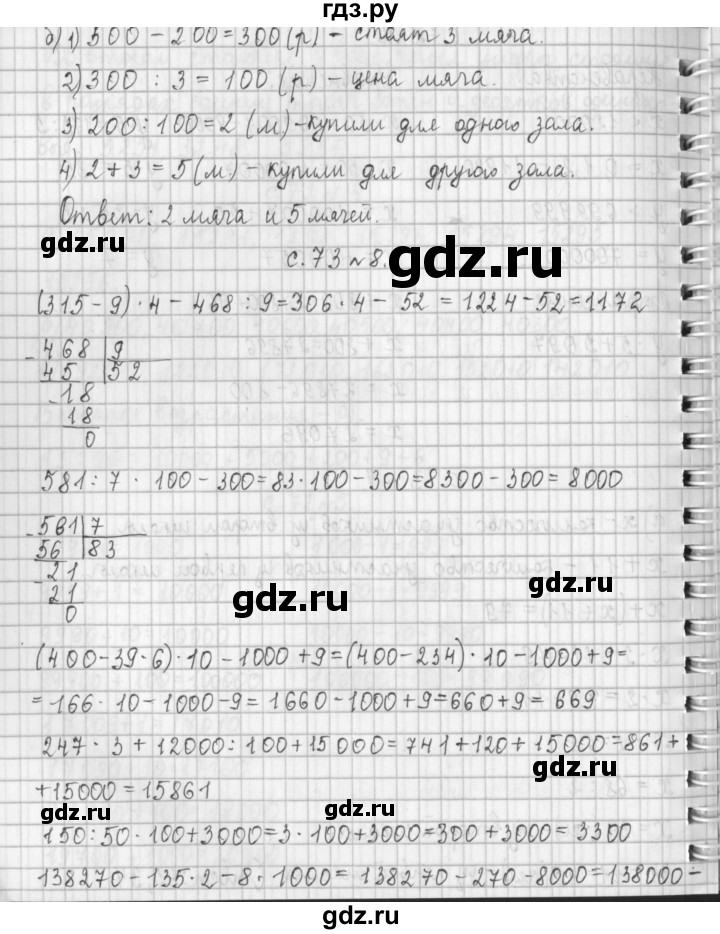 гдз.ру
б) 1) 500 - 200 = 300 (р) - стоят 3 мяча.
2) 300 : 3 = 100 (р) - цена мяча.
3) 200 : 100 = 2 (м) - купили для одного зала.
4) 2 + 3 = 5 (м) - купили для другого зала.
Ответ: 2 мяча и 5 мячей.
gdz.ru
gdz.ru
с. 73 №8.
(315 - 9) · 4 - 468 : 9 = 306 · 4 - 52 = 1224 - 52 = 1172
- 468 | 9
45 | 52
- 18
18
0
581 : 7 · 100 - 300 = 83 · 100 - 300 = 8300 - 300 = 8000
- 581 | 7
56 | 83
- 21
21
0
gdz.ru
gdz.ru
(400 - 39 · 6) · 10 - 1000 + 9 = (400 - 234) · 10 - 1000 + 9 =
= 166 · 10 - 1000 - 9 = 1660 - 1000 + 9 = 660 + 9 = 669
247 · 3 + 12000 : 100 + 15000 = 741 + 120 + 15000 = 861 +
gdz.ru
+ 15000 = 15861
gdz.ru
gdz.ru
150 : 50 · 100 + 3000 = 3 · 100 + 3000 = 300 + 3000 = 3300
138270 - 135 · 2 - 8 · 1000 = 138270 - 270 - 8000 = 138000 -
gdz.ru